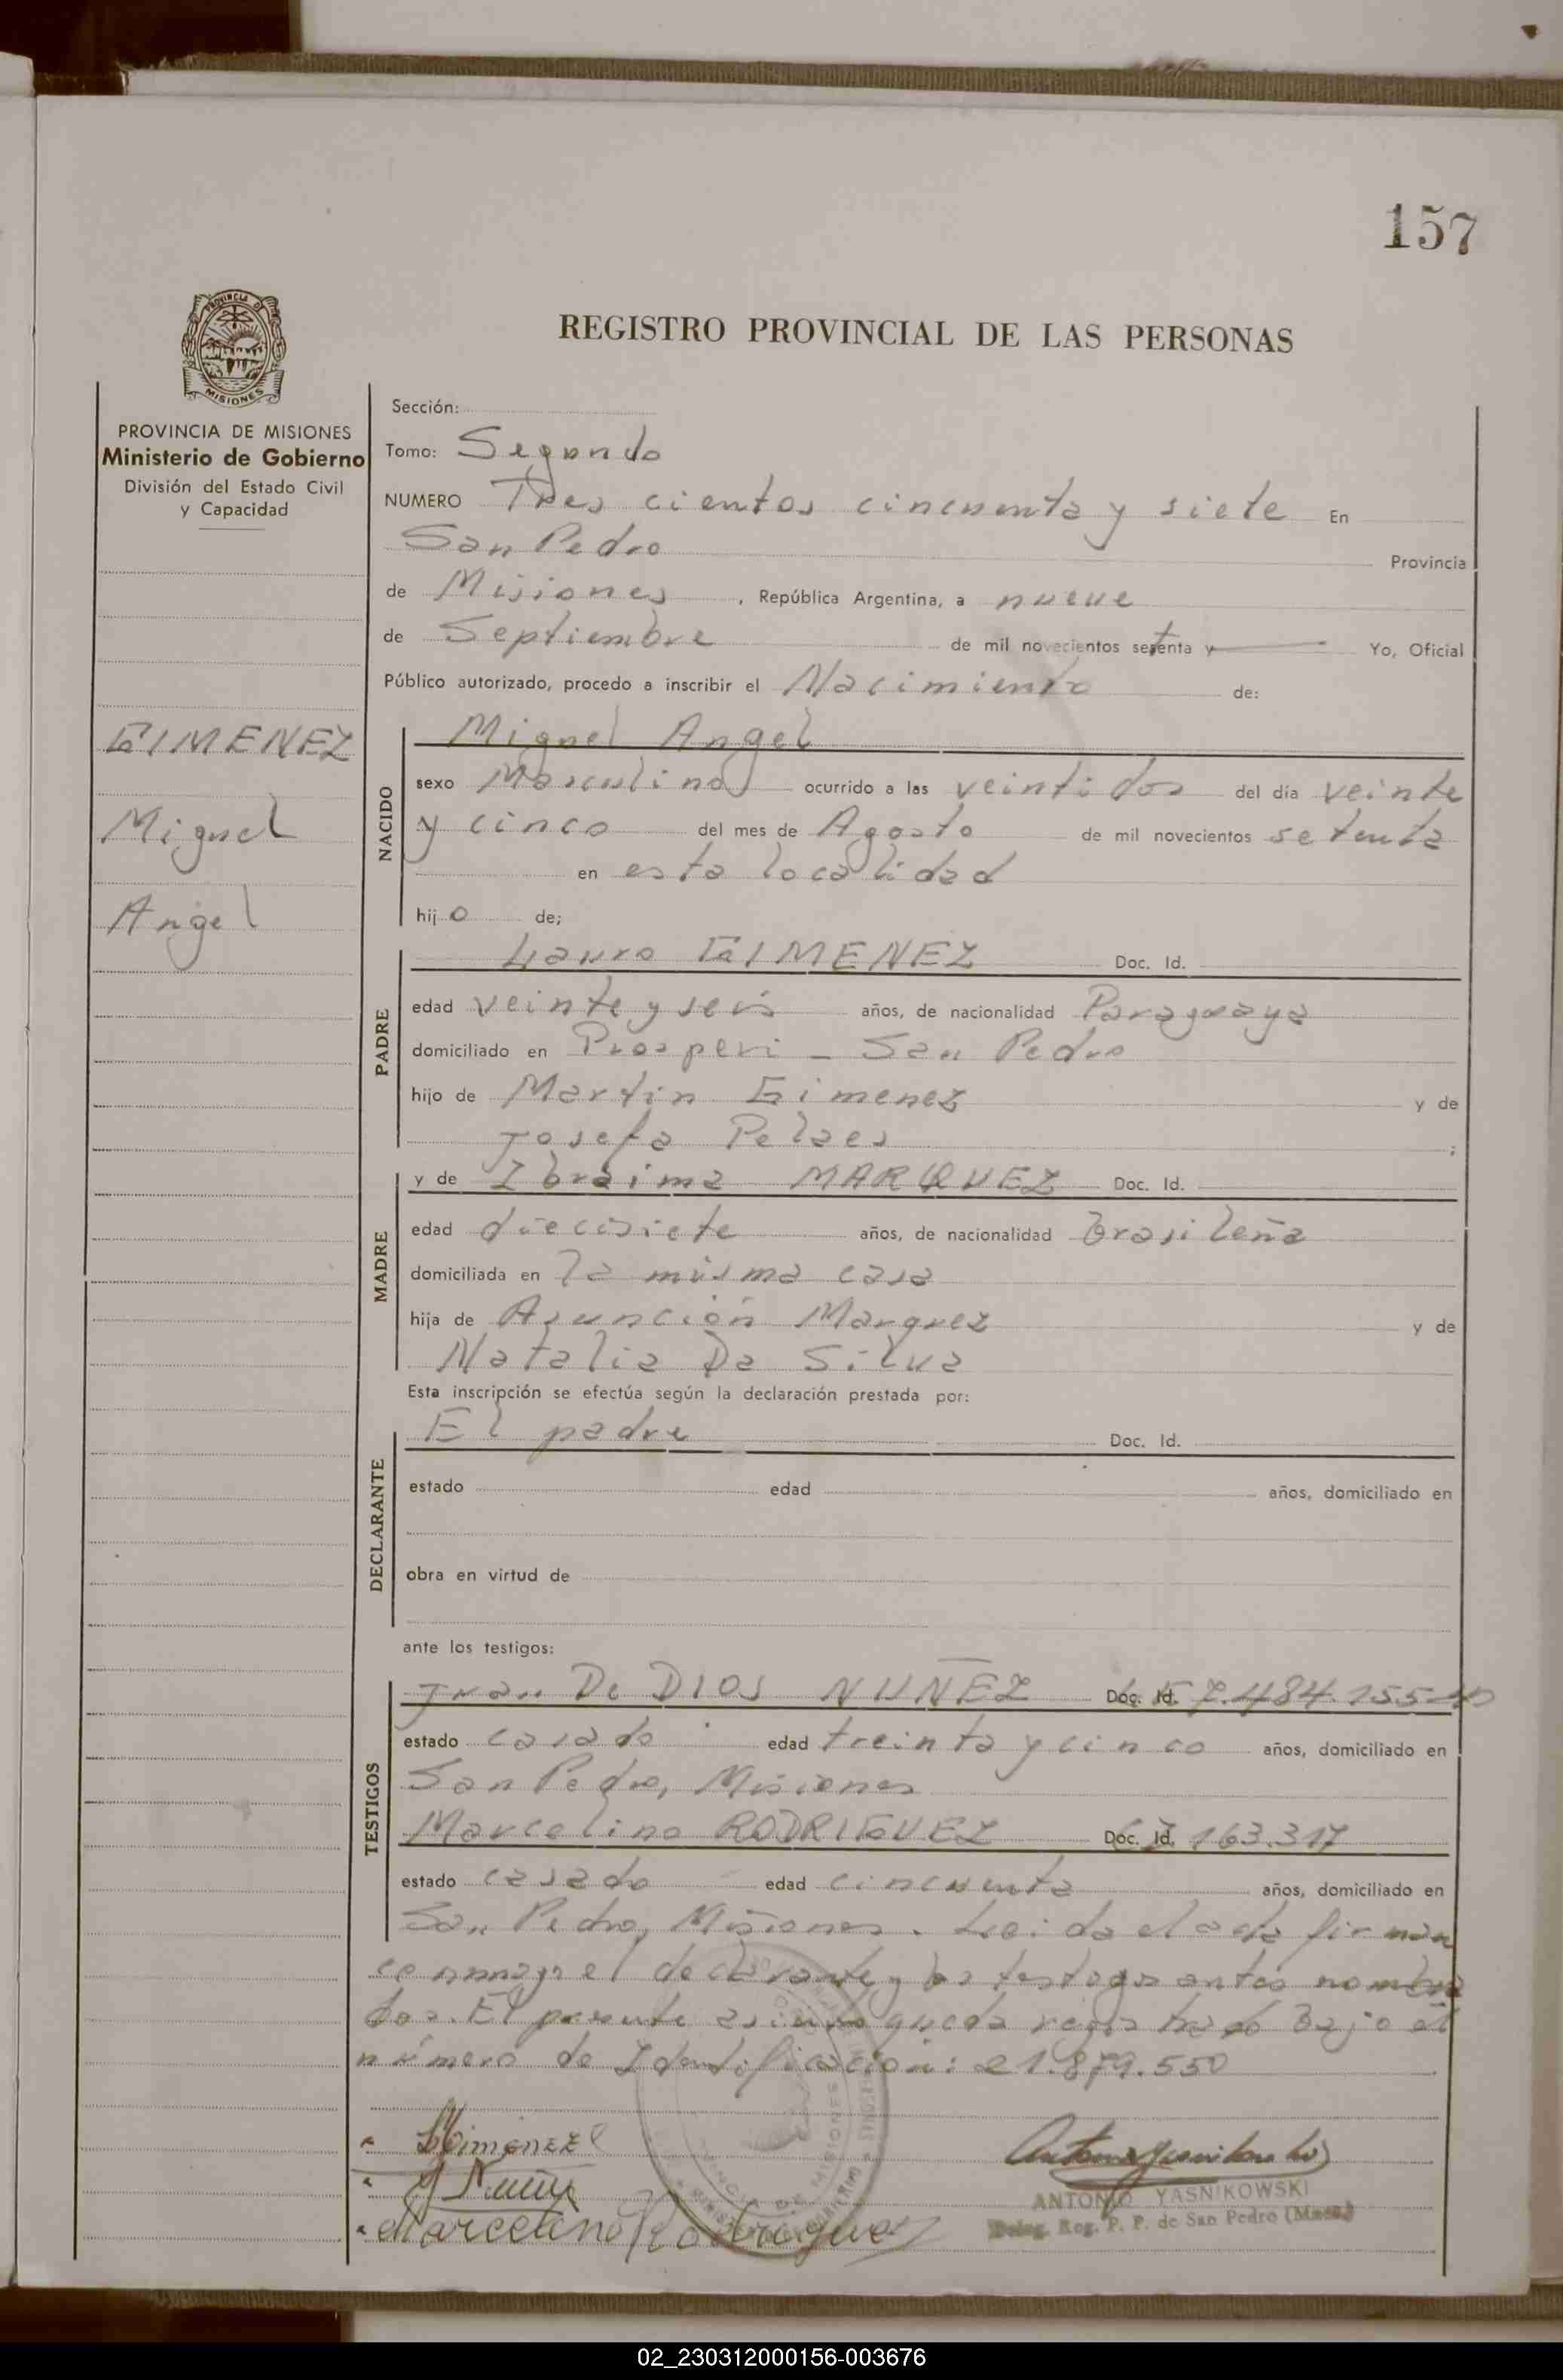 157
PROVINCIA DE
MISIONES
REGISTRO PROVINCIAL DE LAS PERSONAS
PROVINCIA DE MISIONES
Ministerio de Gobierno
División del Estado Civil
y Capacidad
GIMENEZ
Miguel
Angel
Sección:
Tomo: Segundo
NUMERO Tres cientos cincuenta y siete En
San Pedro Provincia
de Misiones, República Argentina, a nueve
de Septiembre de mil novecientos setenta y Yo, Oficial
Público autorizado, procedo a inscribir el Nacimiento de:
NACIDO
Miguel Angel
sexo Masculino ocurrido a las veintidos del día veinte
y cinco del mes de Agosto de mil novecientos setenta
en esta localidad
hijo de;
PADRE
Lauro GIMENEZ Doc. Id.
edad veinte y seis años, de nacionalidad Paraguaya
domiciliado en Prosperi - San Pedro
hijo de Martin Gimenez y de
Josefa Pelaes ;
MADRE
y de Ibraima MARQUEZ Doc. Id.
edad diecisiete años, de nacionalidad Brasileña
domiciliada en la misma casa
hija de Asunción Marquez y de
Natalia Da Silva
Esta inscripción se efectúa según la declaración prestada por:
DECLARANTE
El padre Doc. Id.
estado edad años, domiciliado en
obra en virtud de
ante los testigos:
TESTIGOS
Juan De DIOS NUÑEZ Doc. Id. 7.484.155
estado casado edad treinta y cinco años, domiciliado en
San Pedro, Misiones
Marcelino RODRIGUEZ Doc. Id. 163.317
estado casado edad cincuenta años, domiciliado en
San Pedro, Misiones. Leida el acta firman
conmigo el declarante y los testigos antes nombra
dos. El presente asiento queda registrado Bajo el
número de Identificación: 21.879.550
LGimenez
J Nuñez
Marcelino Rodriguez
ANTONIO YASNIKOWSKI
Deleg. Reg. P. P. de San Pedro (Mnes.)
02_230312000156-003676